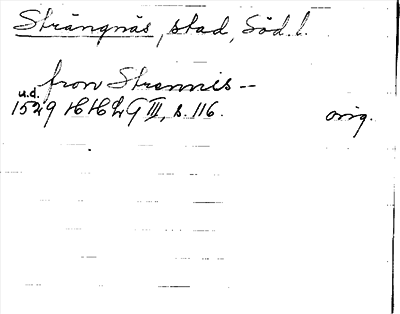 Strängnäs, stad, Söd. l.
from Strennis --
u.d.
1529 HH LG III, s. 116. orig.